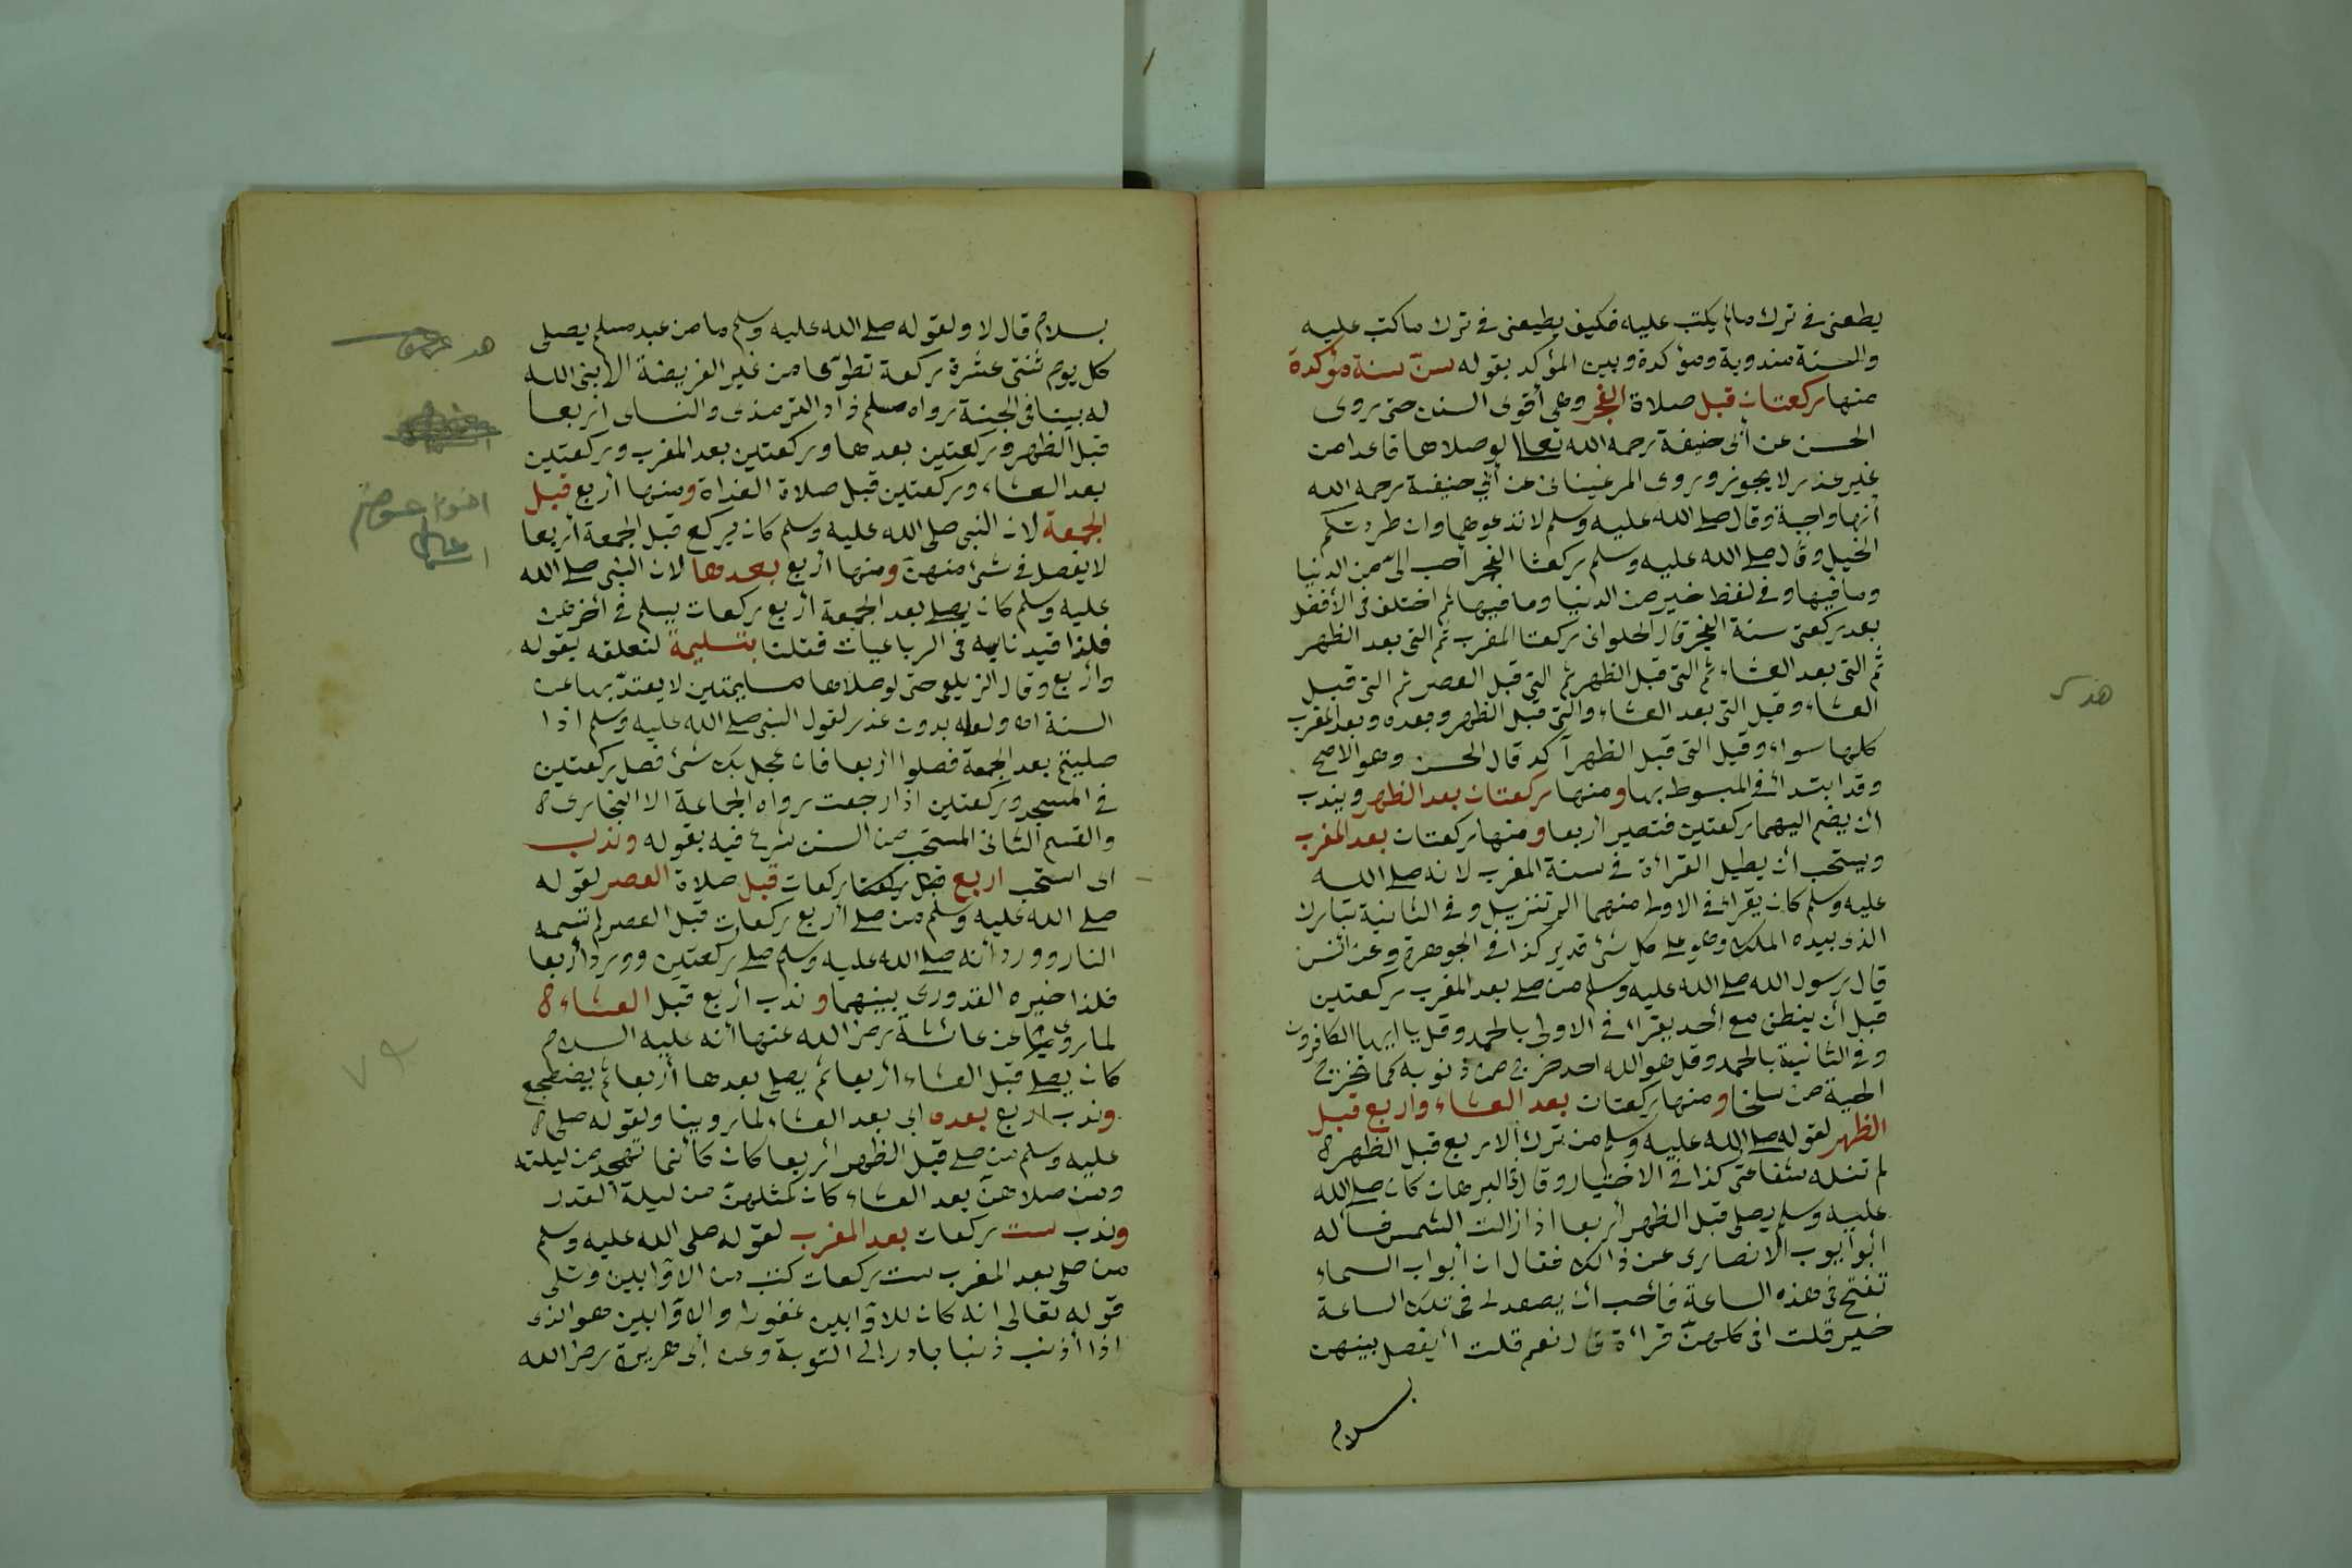 يطعنى فى ترك مالم يكتب عليه فكيف يطيعنى فى ترك ما كتب عليه
والسنة مندوبة ومؤكدة وبين المؤكد بقوله سن سنة مؤكدة
منها ركعتان قبل صلاة الفجر وهى أقوى السنن حتى روى
الحسن عن أبى حنيفة رحمه الله تعالى لو صلاها قاعدا من
غير عذر لا يجوز وروى المرغينانى عن أبى حنيفة رحمه الله
أنها واجبة وقال صلى الله عليه وسلم لا تدعوهما وان طردتكم
الخيل وقال صلى الله عليه وسلم ركعتا الفجر أحب الى من الدنيا
وما فيها وفى لفظ خير من الدنيا وما فيها ثم اختلف فى الأفضل
بعد ركعتى سنة الفجر قال الحلوانى ركعتا المغرب ثم التى بعد الظهر
ثم التى بعد العشاء ثم التى قبل الظهر ثم التى قبل العصر ثم التى قبل
العشاء وقيل التى بعد العشاء والتى قبل الظهر وبعده وبعد المغرب
كلها سواء وقيل التى قبل الظهر آكد قال الحسن وهو الاصح
وقد ابتدأ فى المبسوط بها ومنها ركعتان بعد الظهر ويندب
ان يضم اليهما ركعتين فتصير اربعا ومنها ركعتان بعد المغرب
ويستحب أن يطيل القرائة فى سنة المغرب لانه صلى الله
عليه وسلم كان يقرأ فى الاولى منهما الم تنزيل وفى الثانية تبارك
الذى بيده الملك وهو على كل شئ قدير كذا فى الجوهرة وعن انس
قال رسول الله صلى الله عليه وسلم من صلى بعد المغرب ركعتين
قبل أن ينطق مع أحد يقرأ فى الاولى بالحمد وقل يا ايها الكافرون
وفى الثانية بالحمد وقل هو الله احد خرج من ذنوبه كما تخرج
الحية من سلخها ومنها ركعتان بعد العشاء واربع قبل
الظهر لقوله صلى الله عليه وسلم من ترك الاربع قبل الظهر
لم تنله شفاعتى كذا فى الاختيار وقال فى البرهان كان صلى الله
عليه وسلم يصلى قبل الظهر أربعا اذا زالت الشمس فسأله
أبو أيوب الانصارى عن ذالك فقال ان أبواب السماء
تفتح فى هذه الساعة فأحب أن يصعد لى فى تلك الساعة
خير قلت افى كلهن قرائة قال نعم قلت أيفصل بينهن
بسلام
هد
بسلام قال لا ولقوله صلى الله عليه وسلم ما من عبد مسلم يصلى
كل يوم ثنتى عشرة ركعة تطوعا من غير الفريضة الا بنى الله
له بيتا فى الجنة رواه مسلم زاد الترمذى والنساى اربعا
قبل الظهر وركعتين بعدها وركعتين بعد المغرب وركعتين
بعد العشاء وركعتين قبل صلاة الغداة ومنها أربع قبل
الجمعة لان النبى صلى الله عليه وسلم كان يركع قبل الجمعة أربعا
لا يفصل فى شئ منهن ومنها أربع بعدها لان النبى صلى الله
عليه وسلم كان يصلى بعد الجمعة أربع ركعات يسلم فى أخرهن
فلذا قيدنا به فى الرباعيات فقلنا بتسليمة لتعلقه بقوله
وأربع وقال الزيلعى حتى لو صلاها بتسليمتين لا يعتد بها عن
السنة اه ولعله بدون عذر لقول النبى صلى الله عليه وسلم اذا
صليتم بعد الجمعة فصلوا اربعا فان عجل بك شئ فصل ركعتين
فى المسجد وركعتين اذا رجعت رواه الجماعة الا البخارى
والقسم الثانى المستحب من السنن شرع فيه بقوله وندب
اى استحب اربع ركعات قبل صلاة العصر لقوله
صلى الله عليه وسلم من صلى أربع ركعات قبل العصر لم تمسه
النار وورد أنه صلى الله عليه وسلم صلى ركعتين وورد أربعا
فلذا خيره القدورى بينهما وندب أربع قبل العشاء
لما روى عن عائشة رضى الله عنها أنه عليه السلام
كان يصلى قبل العشاء أربعا ثم يصلى بعدها أربعا ثم يضطجع
وندب أربع بعده اى بعد العشاء لما روينا ولقوله صلى
عليه وسلم من صلى قبل الظهر أربعا كان كأنما تهجد من ليلته
ومن صلاهن بعد العشاء كان كمثلهن من ليلة القدر
وندب ست ركعات بعد المغرب لقوله صلى الله عليه وسلم
من صلى بعد المغرب ست ركعات كتب من الاوابين وتلى
قوله تعالى انه كان للاوابين غفورا والاوابين هو الذى
اذا أذنب ذنبا بادر إلى التوبة وعن أبى هريرة رضى الله